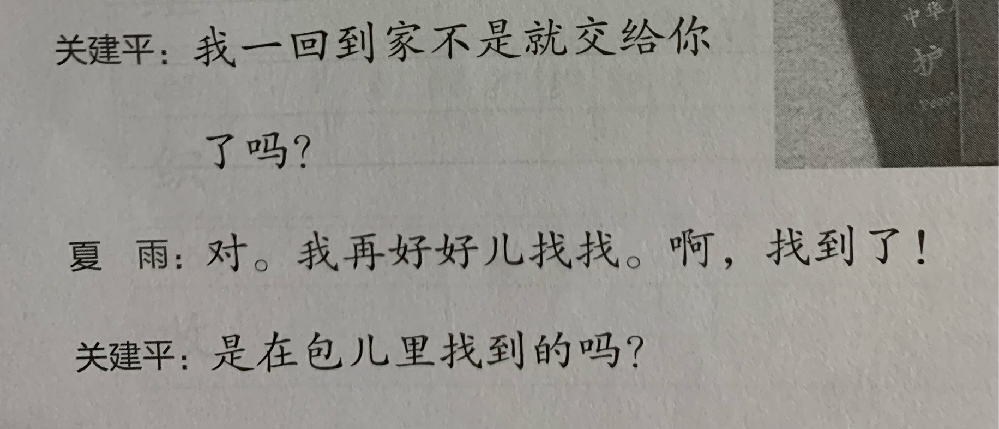 关建平：我一回到家不是就交给你
了吗？
夏　雨：对。我再好好儿找找。啊，找到了！
关建平：是在包儿里找到的吗？
中华
护